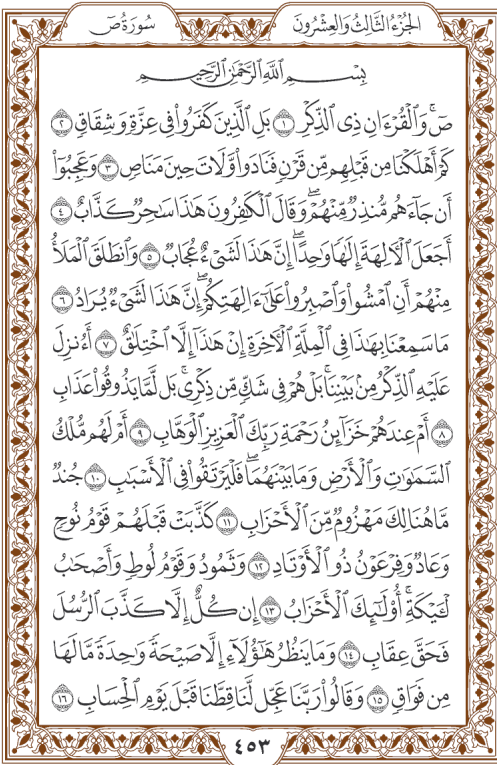 سُورَةُ صٓ
الجُزْءُ الثَّالِثُ وَالعِشْرُونَ
بِسْمِ ٱللَّهِ ٱلرَّحْمَٰنِ ٱلرَّحِيمِ
صٓۚ وَٱلْقُرْءَانِ ذِى ٱلذِّكْرِ ١ بَلِ ٱلَّذِينَ كَفَرُوا۟ فِى عِزَّةٍ وَشِقَاقٍ ٢
كَمْ أَهْلَكْنَا مِن قَبْلِهِم مِّن قَرْنٍ فَنَادَوا۟ وَّلَاتَ حِينَ مَنَاصٍ ٣ وَعَجِبُوٓا۟
أَن جَآءَهُم مُّنذِرٌ مِّنْهُمْۖ وَقَالَ ٱلْكَٰفِرُونَ هَٰذَا سَٰحِرٌ كَذَّابٌ ٤
أَجَعَلَ ٱلْءَالِهَةَ إِلَٰهًا وَٰحِدًاۖ إِنَّ هَٰذَا لَشَىْءٌ عُجَابٌ ٥ وَٱنطَلَقَ ٱلْمَلَأُ
مِنْهُمْ أَنِ ٱمْشُوا۟ وَٱصْبِرُوا۟ عَلَىٰٓ ءَالِهَتِكُمْۖ إِنَّ هَٰذَا لَشَىْءٌ يُرَادُ ٦
مَا سَمِعْنَا بِهَٰذَا فِى ٱلْمِلَّةِ ٱلْءَاخِرَةِ إِنْ هَٰذَآ إِلَّا ٱخْتِلَٰقٌ ٧ أَءُنزِلَ
عَلَيْهِ ٱلذِّكْرُ مِنۢ بَيْنِنَاۚ بَلْ هُمْ فِى شَكٍّ مِّن ذِكْرِىۚ بَل لَّمَّا يَذُوقُوا۟ عَذَابِ
٨ أَمْ عِندَهُمْ خَزَآئِنُ رَحْمَةِ رَبِّكَ ٱلْعَزِيزِ ٱلْوَهَّابِ ٩ أَمْ لَهُم مُّلْكُ
ٱلسَّمَٰوَٰتِ وَٱلْأَرْضِ وَمَا بَيْنَهُمَاۖ فَلْيَرْتَقُوا۟ فِى ٱلْأَسْبَٰبِ ١٠ جُندٌ
مَّا هُنَالِكَ مَهْزُومٌ مِّنَ ٱلْأَحْزَابِ ١١ كَذَّبَتْ قَبْلَهُمْ قَوْمُ نُوحٍ
وَعَادٌ وَفِرْعَوْنُ ذُو ٱلْأَوْتَادِ ١٢ وَثَمُودُ وَقَوْمُ لُوطٍ وَأَصْحَٰبُ
لْـَٔيْكَةِۚ أُو۟لَٰٓئِكَ ٱلْأَحْزَابُ ١٣ إِن كُلٌّ إِلَّا كَذَّبَ ٱلرُّسُلَ
فَحَقَّ عِقَابِ ١٤ وَمَا يَنظُرُ هَٰٓؤُلَآءِ إِلَّا صَيْحَةً وَٰحِدَةً مَّا لَهَا
مِن فَوَاقٍ ١٥ وَقَالُوا۟ رَبَّنَا عَجِّل لَّنَا قِطَّنَا قَبْلَ يَوْمِ ٱلْحِسَابِ ١٦
٤٥٣